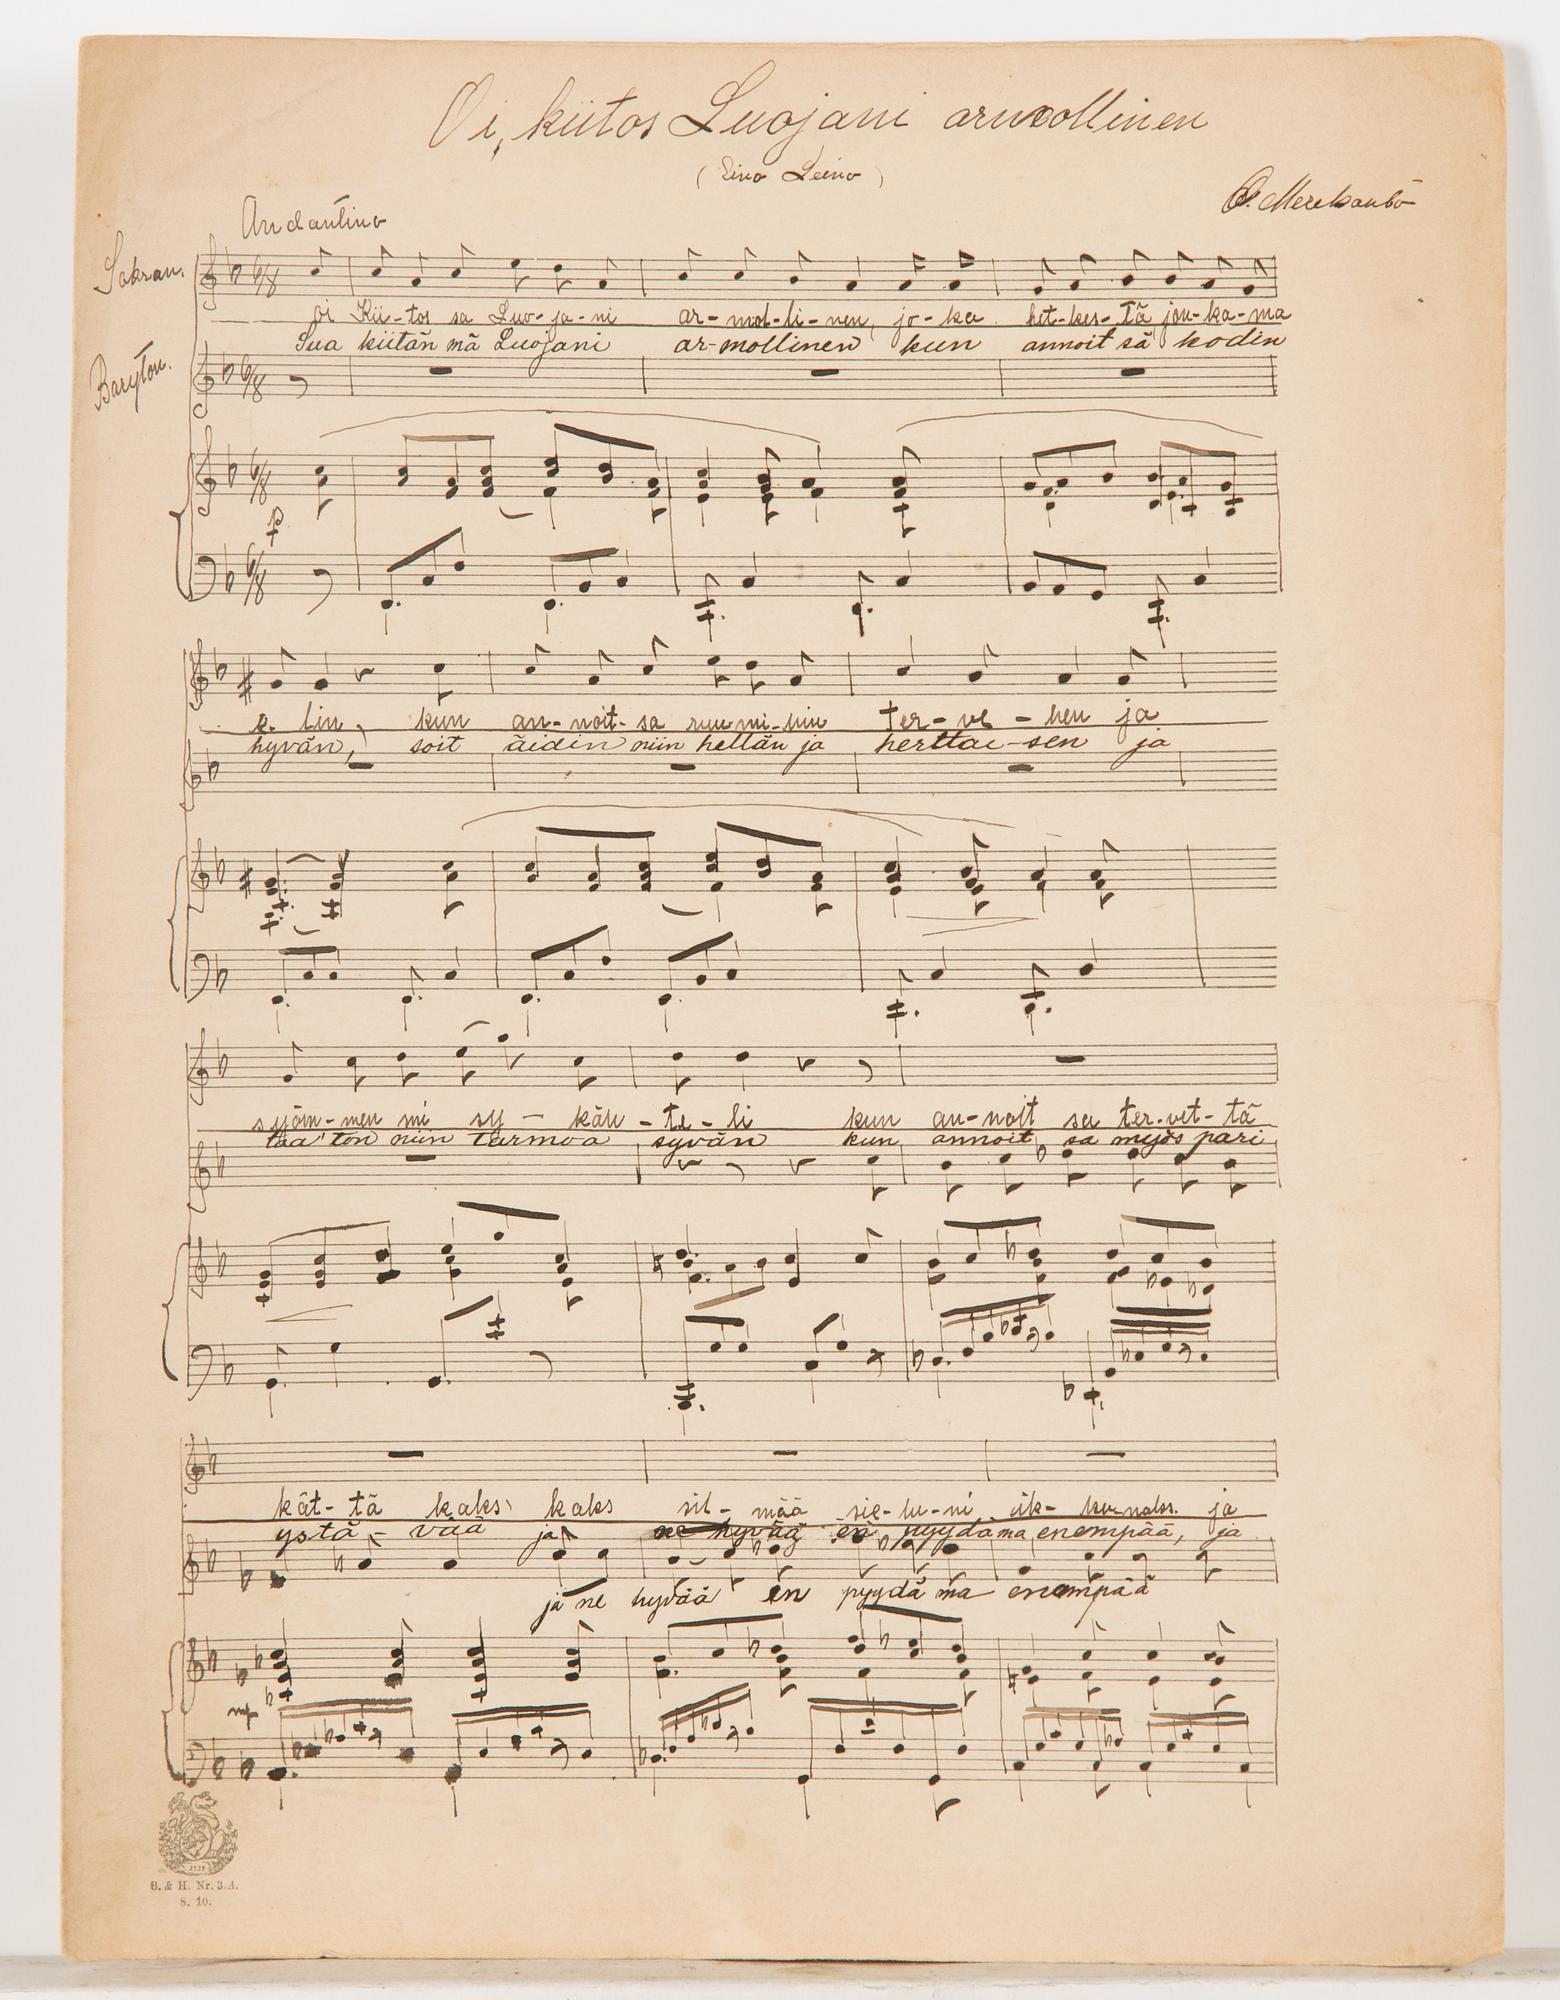 Oi, kiitos Luojani armollinen
(Eino Leino)
O. Merikanto
Andantino
Sopran.
oi Kii-tos sa Luo-ja-ni ar-mol-li-nen, jo-ka het-ken-tä jon-ka-ma
Sua kiitän mä Luojani ar-mollinen kun annoit sä kodin
Baryton.
p
e-lin, kun an-noit-sa ruu-mi-hin ter-ve-hen ja
hyvän, soit äidin niin hellän ja herttai-sen ja
syöm-men mi sy-käh-te-li kun an-noit sa ter-vet-tä
taa'ton niin tarmoa syvän kun annoit sa myös pari
kät-tä kaks, kaks sil-mää sie-lu-ni ik-ku-naks. ja
ystä-vää ja ne hyvää en pyydä ma enempää, ja
ja ne hyvää en pyydä ma enempää
mp
1719
B. & H. Nr. 3. A.
S. 10.